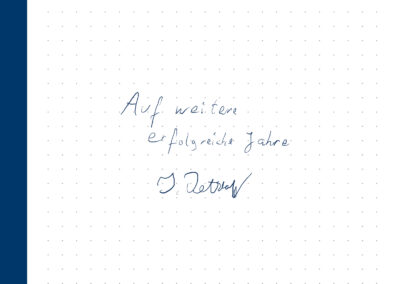 Auf weitere
erfolgreiche Jahre